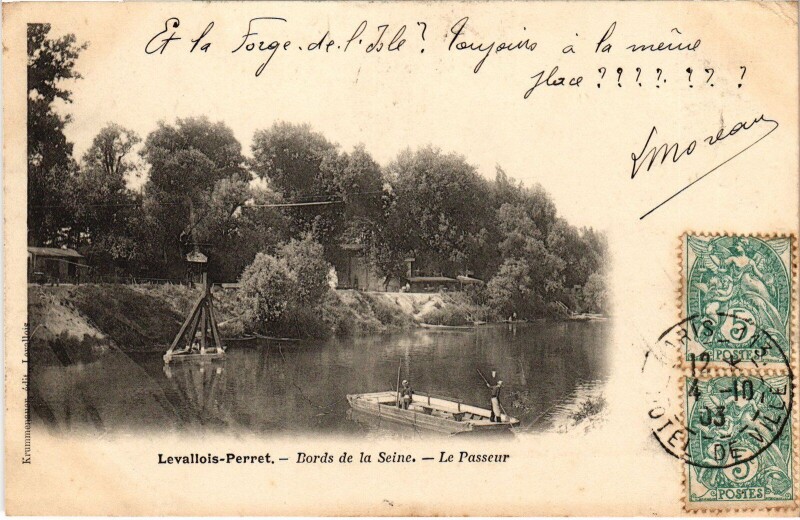 Et la Forge-de-l'Isle? Toujours à la même
place ???? ?? ?
LMoreau
5
POSTES
PARIS
12
4 -10
03
HOTEL DE VILLE
5
POSTES
Levallois-Perret. — Bords de la Seine. — Le Passeur
édit. Levallois